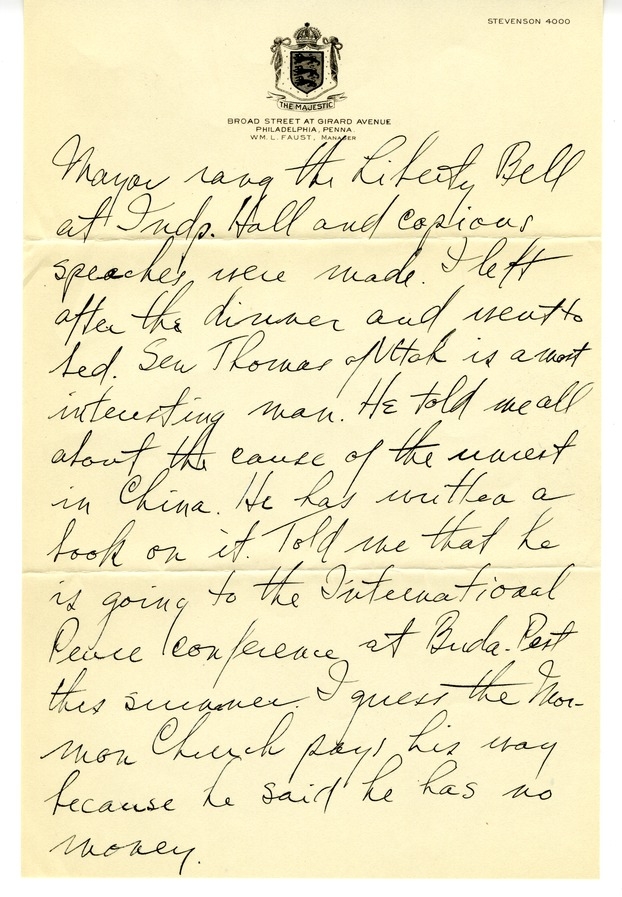 STEVENSON 4000
THE MAJESTIC
BROAD STREET AT GIRARD AVENUE
PHILADELPHIA, PENNA.
WM. L. FAUST, MANAGER
Mayor rang the Liberty Bell
at Indp. Hall and copious
speaches were made. I left
after the dinner and went to
bed. Sen Thomas of Utah is a most
interesting man. He told me all
about the cause of the unrest
in China. He has written a
book on it. Told me that he
is going to the International
Peace conference at Buda-Pest
this summer. I guess the Mor-
mon Church pays his way
because he said he has no
money.